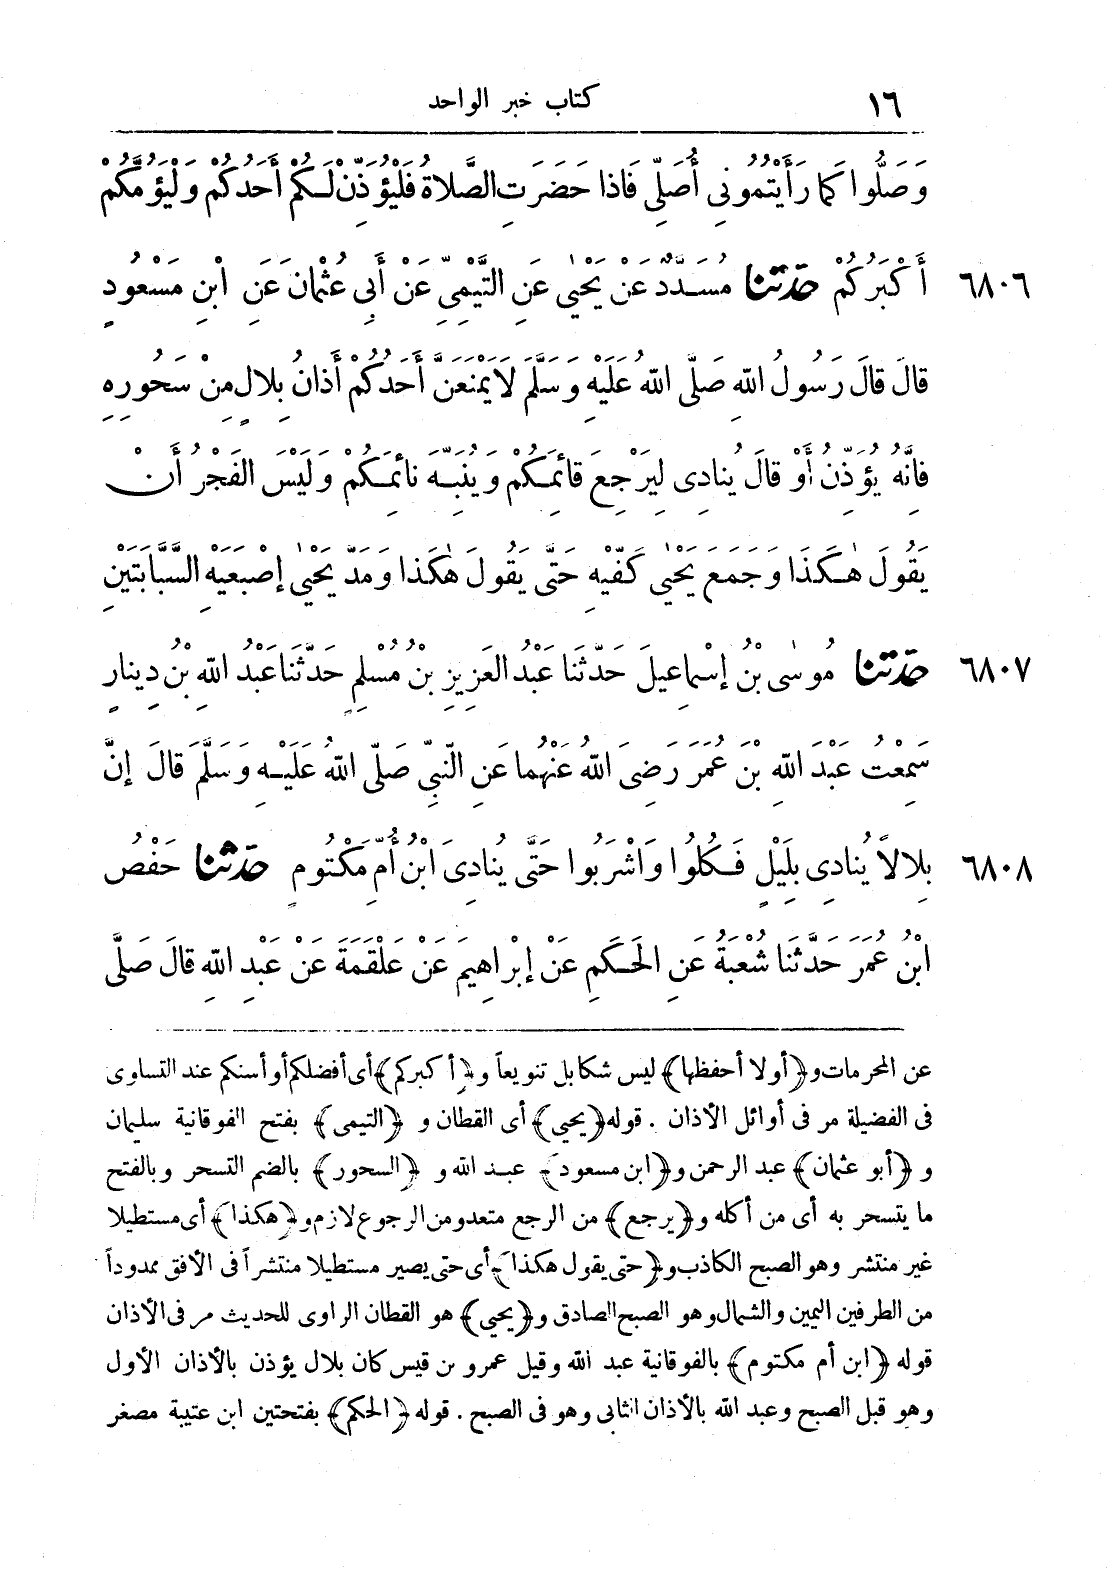 ١٦ كتاب خبر الواحد
وَصَلُّوا كَمَا رَأَيْتُمُونِى أُصَلِّى فَاذَا حَضَرَتِ الصَّلَاةُ فَلْيُؤَذِّنْ لَكُمْ أَحَدُكُمْ وَلْيَؤُمَّكُمْ
٦٨٠٦ أَكْبَرُكُمْ حَدَّثَنَا مُسَدَّدٌ عَنْ يَحْيٰى عَنِ التَّيْمِىِّ عَنْ أَبِى عُثْمَانَ عَنِ ابْنِ مَسْعُودٍ
قَالَ قَالَ رَسُولُ اللهِ صَلَّى اللهُ عَلَيْهِ وَسَلَّمَ لَا يَمْنَعَنَّ أَحَدَكُمْ أَذَانُ بِلَالٍ مِنْ سَحُورِهِ
فَانَّهُ يُؤَذِّنُ أَوْ قَالَ يُنَادِى لِيَرْجِعَ قَائِمَكُمْ وَيُنَبِّهَ نَائِمَكُمْ وَلَيْسَ الفَجْرُ أَنْ
يَقُولَ هٰكَذَا وَجَمَعَ يَحْيٰى كَفَّيْهِ حَتَّى يَقُولَ هٰكَذَا وَمَدَّ يَحْيٰى إِصْبَعَيْهِ السَّبَّابَتَيْنِ
٦٨٠٧ حَدَّثَنَا مُوسٰى بْنُ إِسْمَاعِيلَ حَدَّثَنَا عَبْدُ العَزِيزِ بْنُ مُسْلِمٍ حَدَّثَنَا عَبْدُ اللهِ بْنُ دِينَارٍ
سَمِعْتُ عَبْدَ اللهِ بْنَ عُمَرَ رَضِىَ اللهُ عَنْهُمَا عَنِ النَّبِىِّ صَلَّى اللهُ عَلَيْهِ وَسَلَّمَ قَالَ إِنَّ
٦٨٠٨ بِلَالاً يُنَادِى بِلَيْلٍ فَكُلُوا وَاشْرَبُوا حَتَّى يُنَادِىَ ابْنُ أُمِّ مَكْتُومٍ حَدَّثَنَا حَفْصُ
ابْنُ عُمَرَ حَدَّثَنَا شُعْبَةُ عَنِ الحَكَمِ عَنْ إِبْرَاهِيمَ عَنْ عَلْقَمَةَ عَنْ عَبْدِ اللهِ قَالَ صَلَّى
عن المحرمات و﴿أولا أحفظها﴾ ليس شكا بل تنويعاً و﴿أكبركم﴾ أى أفضلكم أو أسنكم عند التساوى
فى الفضيلة مر فى أوائل الأذان . قوله ﴿يحيى﴾ أى القطان و ﴿التيمى﴾ بفتح الفوقانية سليمان
و ﴿أبو عثمان﴾ عبد الرحمن و﴿ابن مسعود﴾ عبد الله و ﴿السحور﴾ بالضم التسحر وبالفتح
ما يتسحر به أى من أكله و﴿يرجع﴾ من الرجع متعد ومن الرجوع لازم و﴿هكذا﴾ أى مستطيلا
غير منتشر وهو الصبح الكاذب و﴿حتى يقول هكذا﴾ أى حتى يصير مستطيلا منتشراً فى الأفق ممدوداً
من الطرفين اليمين والشمال وهو الصبح الصادق و﴿يحيى﴾ هو القطان الراوى للحديث مر فى الأذان
قوله ﴿ابن أم مكتوم﴾ بالفوقانية عبد الله وقيل عمرو بن قيس كان بلال يؤذن بالأذان الأول
وهو قبل الصبح وعبد الله بالأذان الثانى وهو فى الصبح . قوله ﴿الحكم﴾ بفتحتين ابن عتيبة مصغر